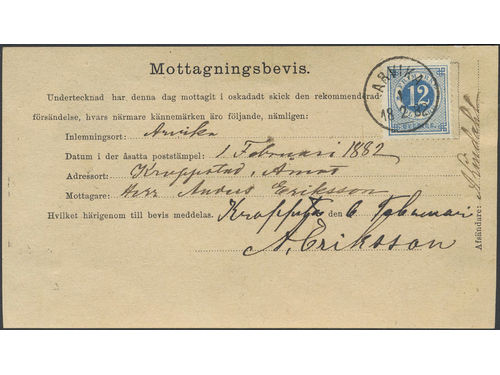 Mottagningsbevis.
Undertecknad har denna dag mottagit i oskadadt skick den rekommenderad
försändelse, hvars närmare kännemärken äro följande, nämligen:
Inlemningsort: Arvika
Datum i der åsatta poststämpel: 1 Februari 1882
Adressort: Kroppstad, Åmot
Mottagare: Herr Anders Eriksson
Hvilket härigenom till bevis meddelas. Kroppsta den 6 Februari
A. Eriksson
Afsändare:
ARVIKA
18 2
12